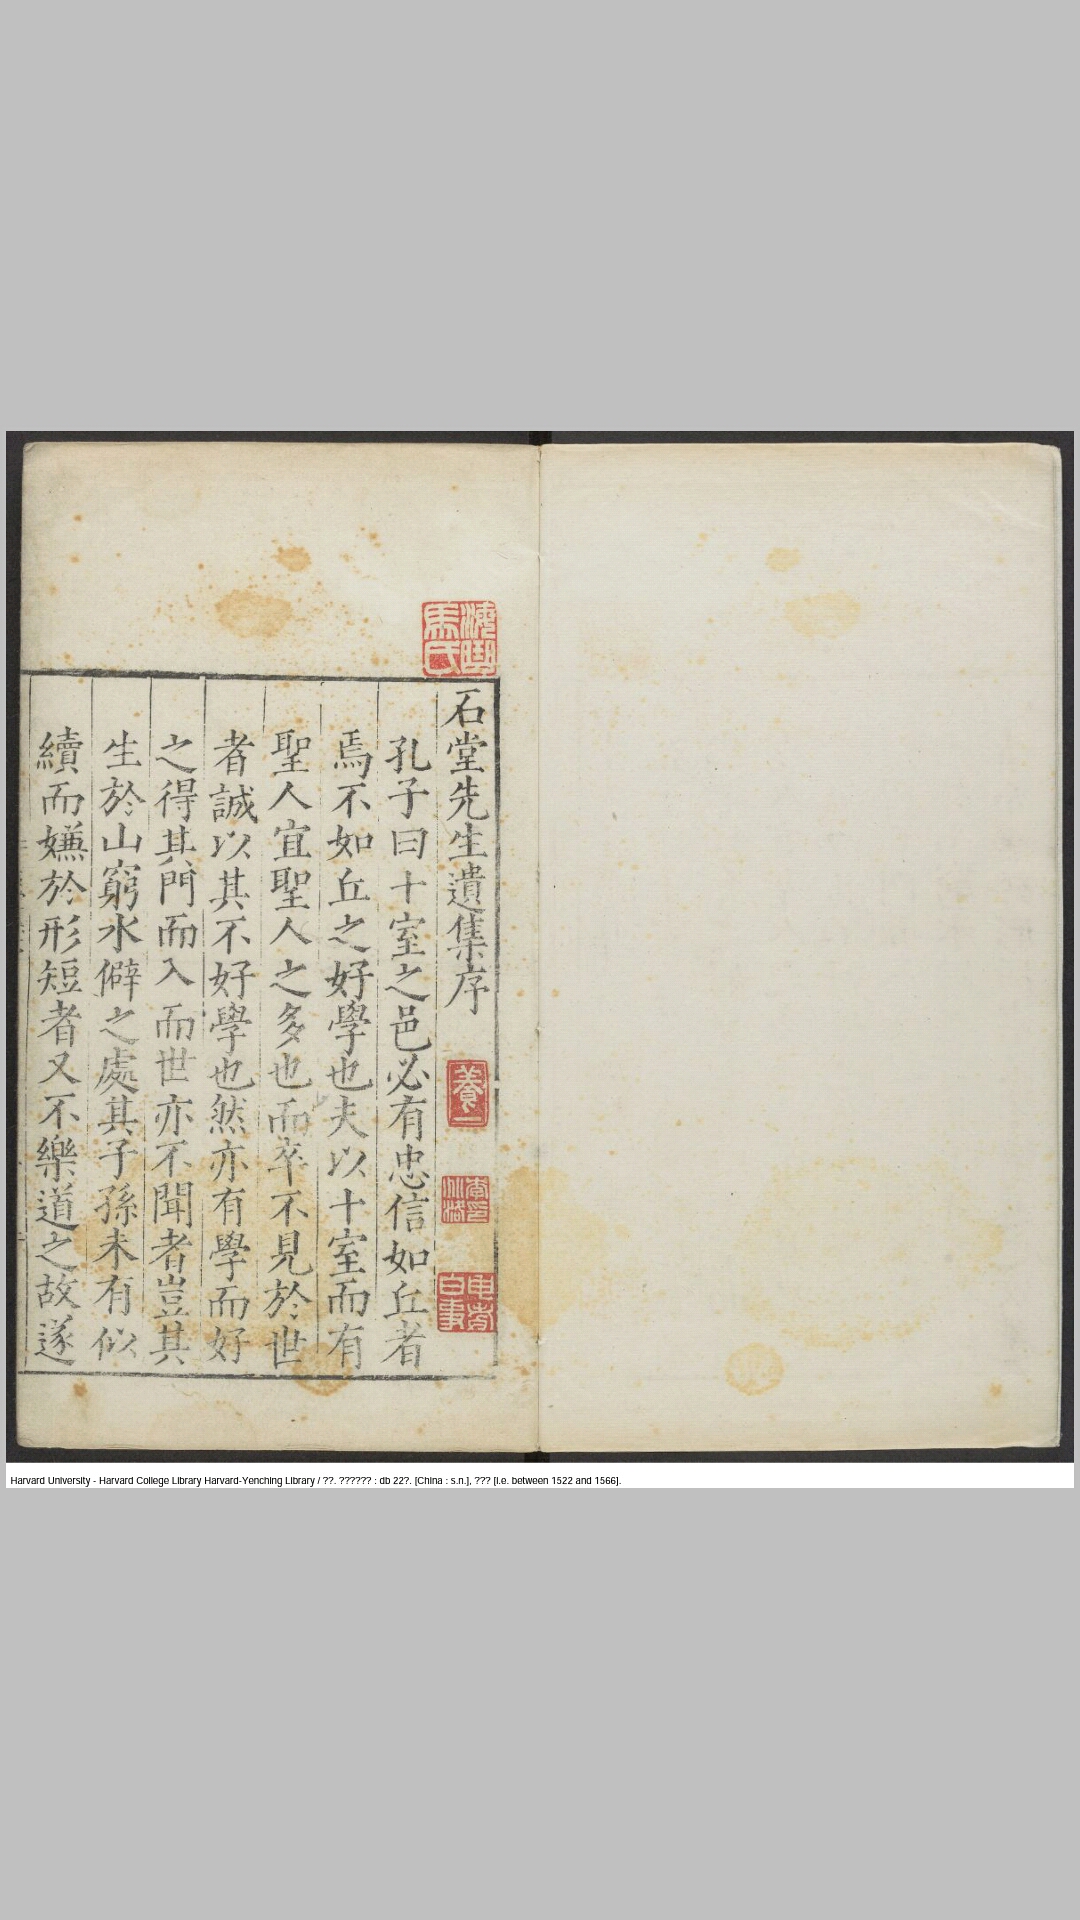 石堂先生遺集序
孔子曰十室之邑必有忠信如丘者
焉不如丘之好學也夫以十室而有
聖人宜聖人之多也而卒不見於世
者誠以其不好學也然亦有學而好
之得其門而入而世亦不聞者豈其
生於山窮水僻之處其子孫未有似
續而嫌於形短者又不樂道之故遂
養一
Harvard University - Harvard College Library Harvard-Yenching Library / ??. ?????? : db 22?. [China : s.n.], ??? [i.e. between 1522 and 1566].